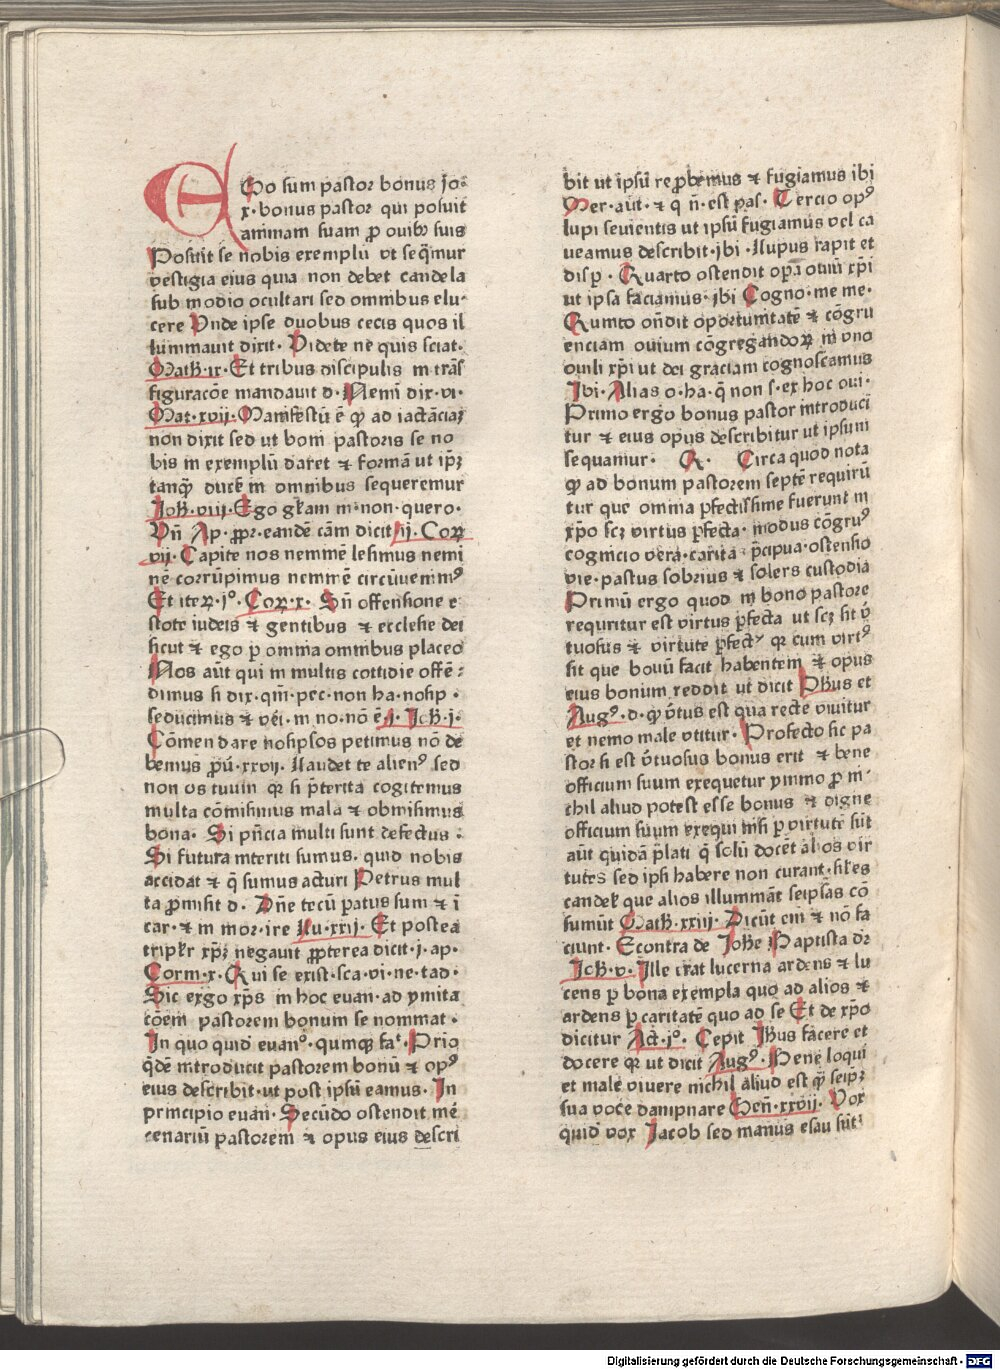 EGo sum pastor bonus jo⁊
x·bonus pastor qui posuit
animam suam ꝓ ouibꝫ suis
Posuit se nobis exemplū vt seq̄mur
vestigia eius quia non debet candela
sub modio ocultari sed omnibus elu-
cere Vnde ipse duobus cecis quos il
luminauit dixit· Videte ne quis sciat·
Math·ix·Et tribus discipulis in trās
figuracōe mandauit d·Nemī dix·vi·
Mat·xvij·Manifestū ē ꝙ ad iactāciaꝫ
non dixit sed ut boni pastoris se no
bis in exemplū daret ⁊ formā ut ipm̄
tanꝙ̄ ducē in omnibus sequeremur
Joh·viij·Ego gl̄am m·non·quero·
Vn̄ Ap·ꝓpt·eandē cām dicit ij·Corꝝ
vij·Capite nos neminē lesimus nemi
nē corrūpimus neminē circūuenimꝰ
Et iteꝝ·jº·Corꝝ·x· Sn̄ offensione e
stote iudeis ⁊ gentibus ⁊ ecclesie dei
sicut ⁊ ego ꝑ omnia omnibus placeo
Nos aūt qui in multis cottidie offē-
dimus si dix·qm̄·pec·non ha·nosip·
seducimus ⁊ vēi·in no·nō ē j·Joh·j·
Cōmendare nosipsos petimus nō de
bemus ꝓū·xxvij·Laudet te alienꝰ sed
non os tuum qr si p̄terita cogitemus
multa cōmisimus mala ⁊ obmisimus
bona· Si pn̄cia multi sunt defectus·
Si futura interiti sumus·quid nobis
accidat ⁊ q̄ sumus acturi Petrus mul
ta ꝓmisit d· Dn̄e tecū paratus sum ⁊ ī
car·⁊ in mor·ire Lu·xxij·Et postea
triplr xpm̄ negauit ꝓpterea dicit·j·ap·
Corin·x·Qui se exist·sca·vi·ne·tad·
Sic ergo xps̄ in hoc euan·ad ymita
cōem pastorem bonum se nominat·
In quo quid euanº·qumqꝫ fa·Prīo
q̄dē introducit pastorem bonū ⁊ opꝰ
eius describit·ut post ipsū eamus·In
principio euan·Secūdo ostendit mē
cenariū pastorem ⁊ opus eius descri
bit ut ipsū reꝓbemus ⁊ fugiamus ibi
Mer·aūt·⁊ q n̄·est pas·Tercio opꝰ
lupi seuientis ut ipsū fugiamus vel ca
ueamus describit·ibi·Lupus rapit et
disp·Quarto ostendit oꝑa ouiū xp̄i
ut ipsa faciamus·ibi Cogno·me me·
Quinto on̄dit oportunitatē ⁊ cōgru
enciam ouium cōgregandoꝝ in vno
ouili xp̄i ut dei graciam cognoscamus
Ibi·Alias o·ha·q̄ non s·ex hoc oui·
Primo ergo bonus pastor introduci
tur ⁊ eius opus describitur ut ipsum
sequamur· Q· Circa quod nota
ꝙ ad bonum pastorem septē requirū
tur que omnia ꝑfectissime fuerunt in
xp̄o scꝫ virtus ꝑfecta·modus cōgruꝰ
cognicio vera·carita p̄cipua·ostensio
vie·pastus sobrius ⁊ solers custodia
Primū ergo quod in bono pastore
requritur est virtus ꝑfecta ut scꝫ sit v̄
tuosus ⁊ virtute ꝑfectꝰ qr cum virtꝰ
sit que bonū facit habentem ⁊ opus
eius bonum reddit ut dicit Phus et
Augꝰ·d·ꝙ v̄tus est qua recte viuitur
et nemo male vtitur·Profecto sic pa
stor si est v̄tuosus bonus erit ⁊ bene
officium suum exequetur ymmo ꝓ ni
chil aliud potest esse bonus ⁊ digne
officium suum exequi nisi ꝑ virtutē sūt
aūt quidā p̄lati q̄ solū docēt alios vir
tutes sed ipsi habere non curant·sil̄es
candel̄ que alios illumināt seipsas cō
sumūt Math·xxiij·Dicūt em̄ ⁊ nō fa
ciunt·Econtra de Johe Baptista dr̄
Joh·v·Ille erat lucerna ardens ⁊ lu
cens ꝑ bona exempla quo ad alios ⁊
ardens ꝑ caritatē quo ad se Et de xp̄o
dicitur Act·jº·Cepit Jhus facere et
docere qr ut dicit Augꝰ·Bene loqui
et male viuere nichil aliud est ꝙ̄ seipm̄
sua voce dampnare Gen̄·xxvij·Vox
quid vox Jacob sed manus esau sūt
Digitalisierung gefördert durch die Deutsche Forschungsgemeinschaft · DFG